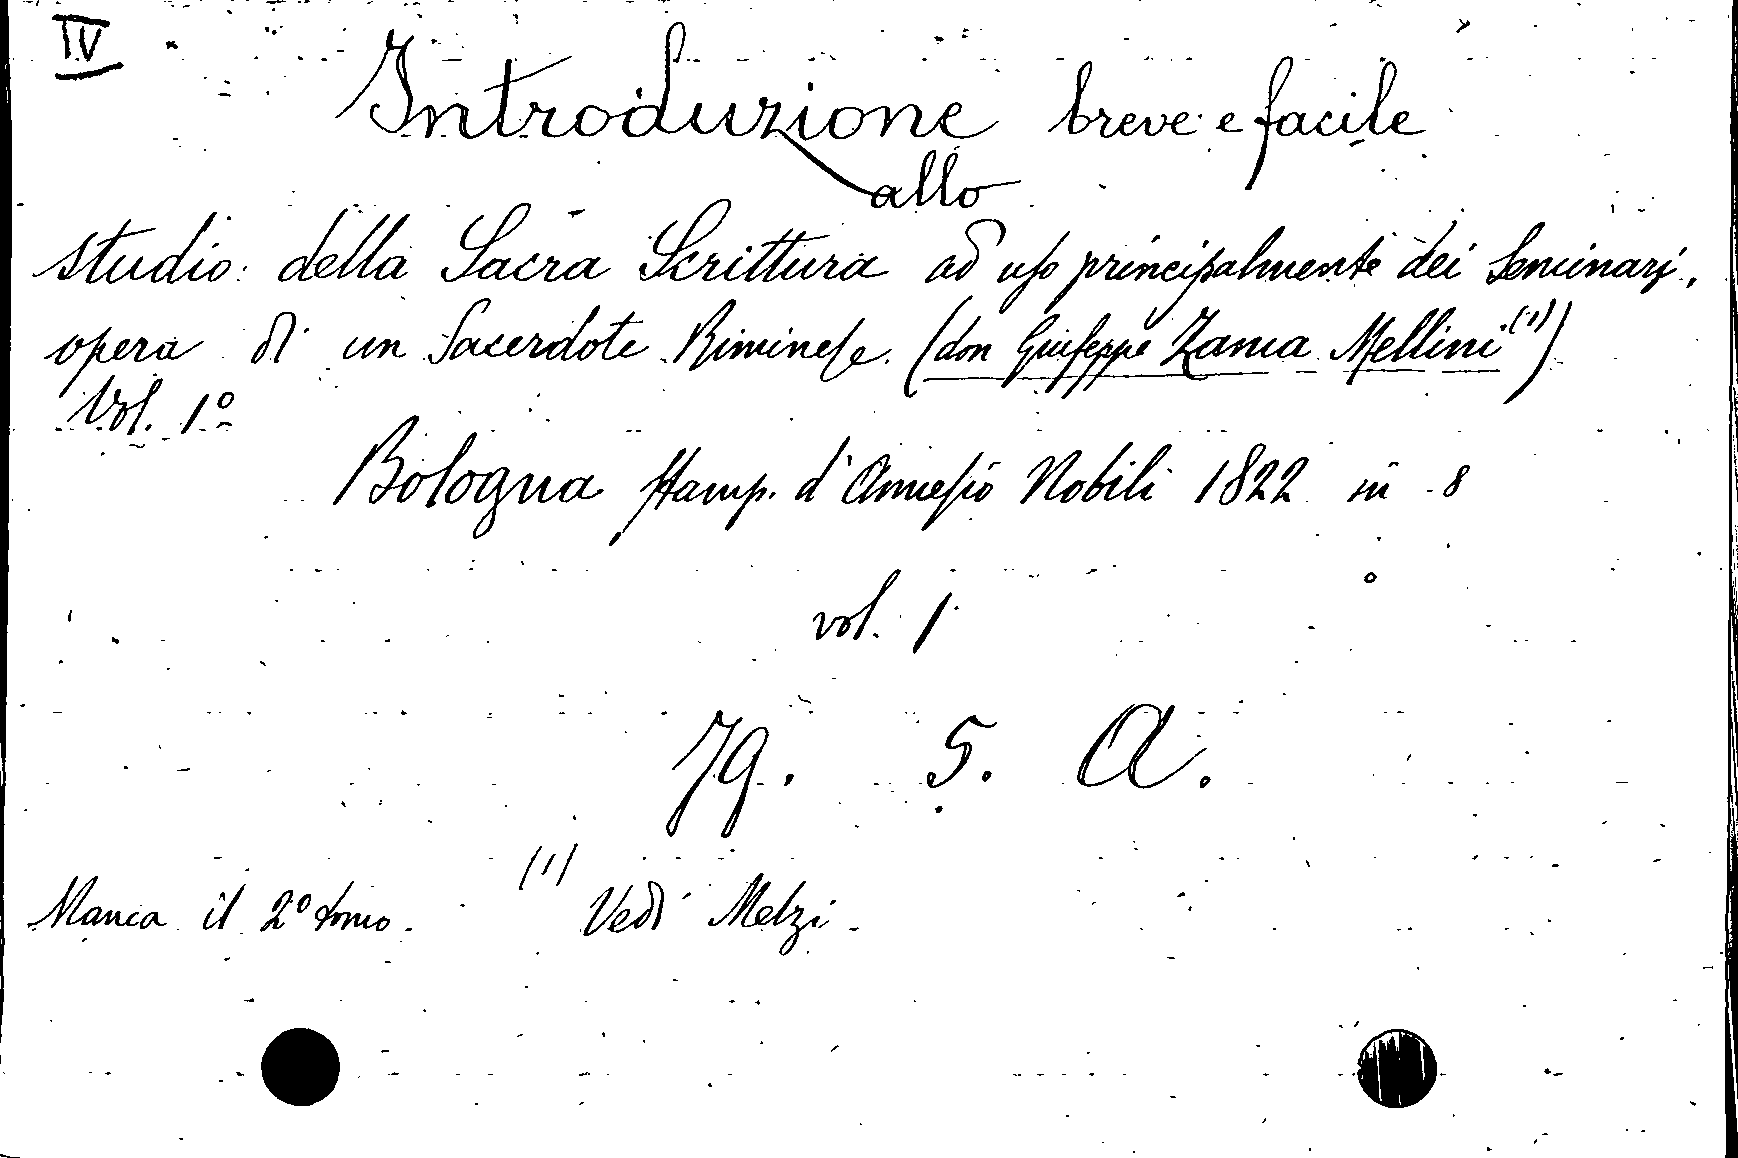 IV
Introduzione breve e facile
allo
studio della Sacra Scrittura ad uso principalmente dei Seminarj,
opera di un Sacerdote Riminese. (don Giuseppe Zama Mellini (1))
Vol. 1º
Bologna stamp. d'Annesio Nobili 1822 in 8º
vol. 1
79. 5. A.
Manca il 2º tomo. (1) Vedi Melzi.